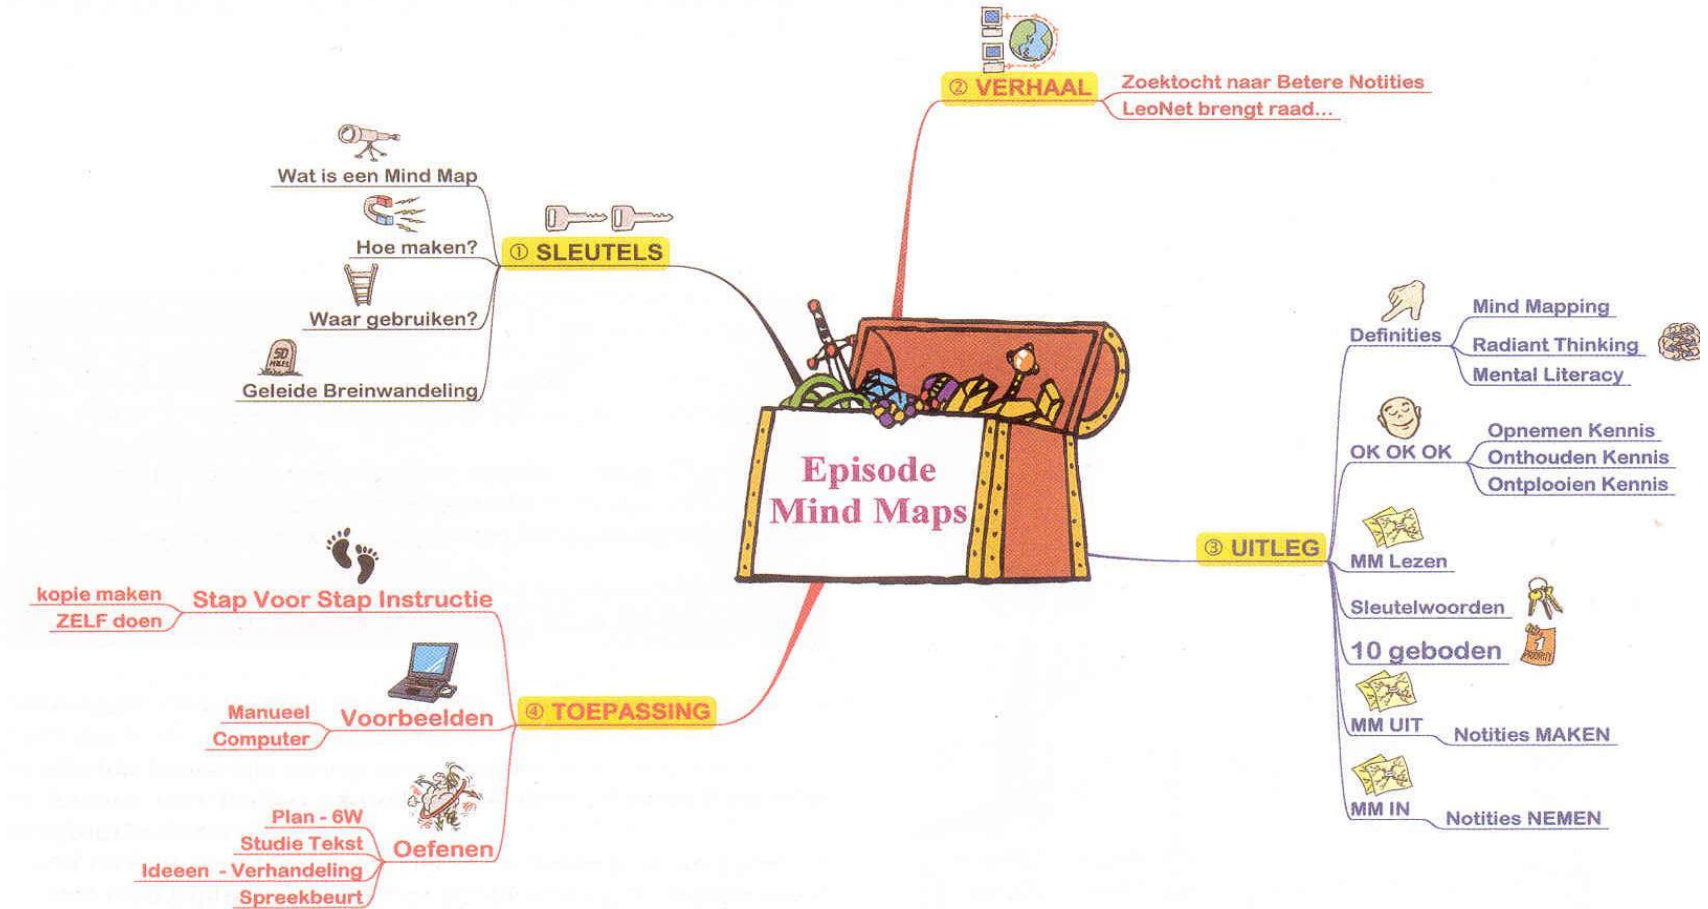 Episode
Mind Maps
① SLEUTELS
Wat is een Mind Map
Hoe maken?
Waar gebruiken?
50
MILES
Geleide Breinwandeling
② VERHAAL
Zoektocht naar Betere Notities
LeoNet brengt raad...
③ UITLEG
Definities
Mind Mapping
Radiant Thinking
Mental Literacy
OK OK OK
Opnemen Kennis
Onthouden Kennis
Ontplooien Kennis
MM Lezen
Sleutelwoorden
10 geboden
1
PRIORITY
MM UIT
Notities MAKEN
MM IN
Notities NEMEN
④ TOEPASSING
Stap Voor Stap Instructie
kopie maken
ZELF doen
Voorbeelden
Manueel
Computer
Oefenen
Plan - 6W
Studie Tekst
Ideeen - Verhandeling
Spreekbeurt